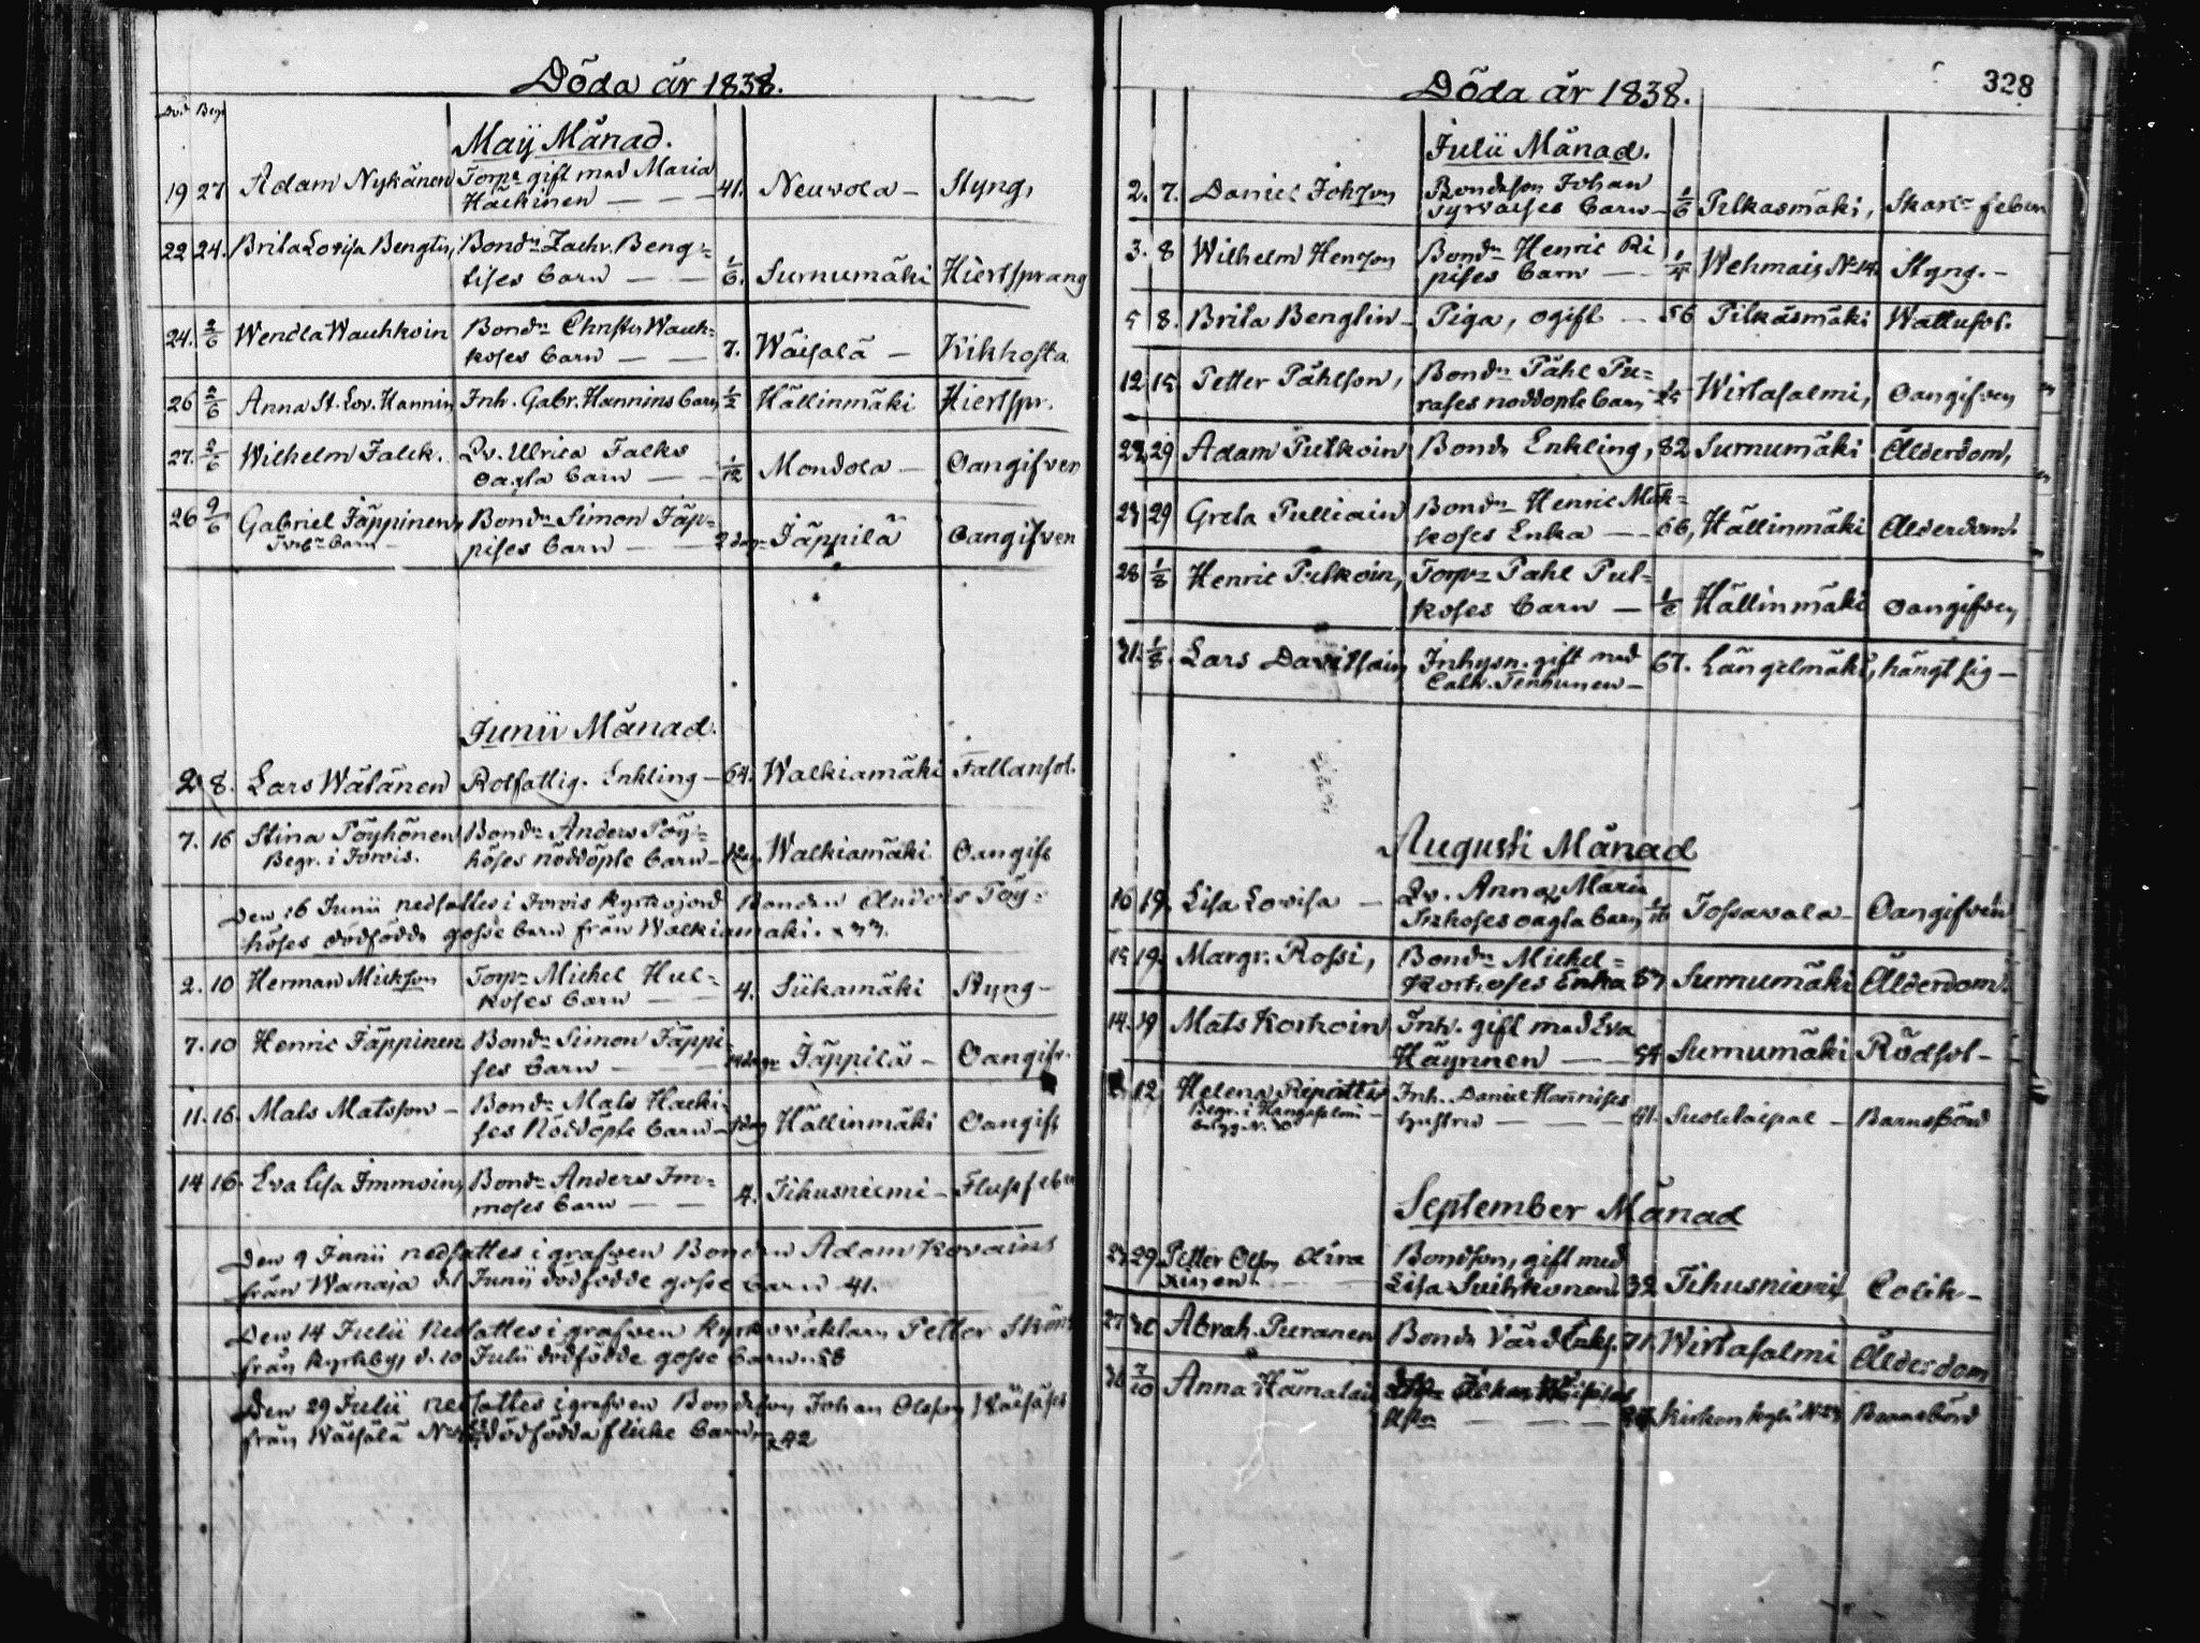 Döda år 1838.
Död Begr
Maij Månad.
19 27 Adam Nykänen Torp. gift med Maria
Häckinen 41. Neuvola Styng,
22 24. Brita Lovisa Bengtin, Bondn Zachr. Beng=
tises barn 1/6. Surnumäki Hiertsprång
24. 2/6 Wendla Wauhkoin Bondn Christer Wauh=
koses barn 7. Wäisälä Kikhosta
26 2/6 Anna St. Lov. Hannin Inh. Gabr. Hannins barn 1/2 Hällinmäki Hiertspr.
27. 2/6 Wilhelm Falck. Qv. Ulrica Falks
oägta barn 1/12 Mondola Oangifven
26 9/6 Gabriel Jäppinen, Bondn Simon Jäp=
pises barn 2 dag. Jäppilä Oangifven
Junii Månad.
2 8. Lars Wätänen Rotfattig. Enkling 64. Walkiamäki Fallandsot.
7. 16 Stina Pöyhönen Bondn Anders Pöy=
Begr. i Jorois. höses nöddöpte barn Walkiamäki Oangift
Den 16 Junii nedsattes i Jorois kyrkojord Bonden Anders Pöy=
höses dödfödde gosse barn från Walkiamäki.
2. 10 Herman Mickson Torp. Michel Hul=
koses barn 4. Siikamäki Styng
7. 10 Henric Jäppinen Bondn Simon Jäppi
ses barn Jäppilä Oangifv.
11. 16. Mats Matsson Bondn Mats Hacki=
ses Nöddöpte barn 1 dag Hällinmäki Oangift
14 16. Eva Lisa Immoin, Bondn Anders Im=
moses barn 4. Tihusniemi Flussfeber
Den 9 Junii nedsattes i grafven Bonden Adam Kovains
från Wanaja d. 1 Junii dödfödde gosse barn 41.
Den 14 Julii nedsattes i grafven Kyrkovaktarn Petter
från Kyrkby, d. 10 Julii dödfödde gosse barn
Den 29 Julii nedsattes i grafven Bondeson Johan Olsson Wäisäses
från Wäisälä dödfödda flicke barn 42
328
Döda år 1838.
Julii Månad.
2. 7. Daniel Johson Bondeson Johan
Syrväises barn 1/6 Pilkasmäki, Skarl. feber
3. 8 Wilhelm Henson Bondn Henric Ri
pises barn 1/4 Wehmais No 14. Styng.
5 8. Brita Bengtin Piga, ogift 56 Pilkäsmäki Wattusot.
12 15 Petter Påhlson, Bondn Påhl Pu=
rases nöddopte barn Wirtasalmi, Oangifven
29 Adam Pulkoin Bonde Enkling, 82 Surnumäki Ålderdom,
29 Greta Pulliain Bondn Henric
koses Enka 66, Hällinmäki Ålderdom.
28 1/8 Henric Pulkoin, Torp. Påhl Pul=
koses barn 1/6 Hällinmäki Oangifven
31. 1/8. Lars Davitsain Inhysn. gift med
Cath. Tenhunen 67. Längelmäki, hängt sig
Augusti Månad
10 19. Lisa Lovisa Qv. Anna Maria
oägta barn Jossavala Oangifven
15 19. Margr. Rossi, Bondn Michel
Korhoses Enka Surnumäki Ålderdom.
14. 19 Mats Korhoin Inh. gift med Eva
Häyrinen 54 Surnumäki Rödsot
12 Helena Inh. Daniel Hannises
Begr. i Hangasalmi hustru 41. Suoletaipal Barnsbörd
September Månad
29. Petter Olson Aira Bondson, gift med
xinen. Lisa Suihkonen. 32 Tihusniemi Colik
27 30 Abrah. Puranen Bonde 71. Wirtasalmi Ålderdom
7/10 Anna Hämäläin
Barnsbörd